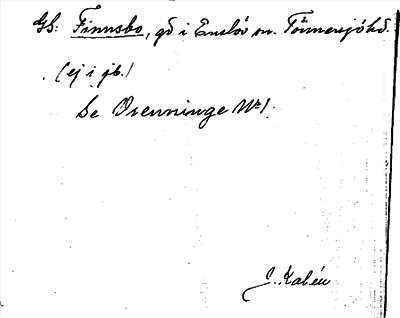 Gs: Finnsbo, gd i Enslöv sn. Tönnersjö hd.
(ej i jb.)
Se Orenninge No 1.
J. Kalén